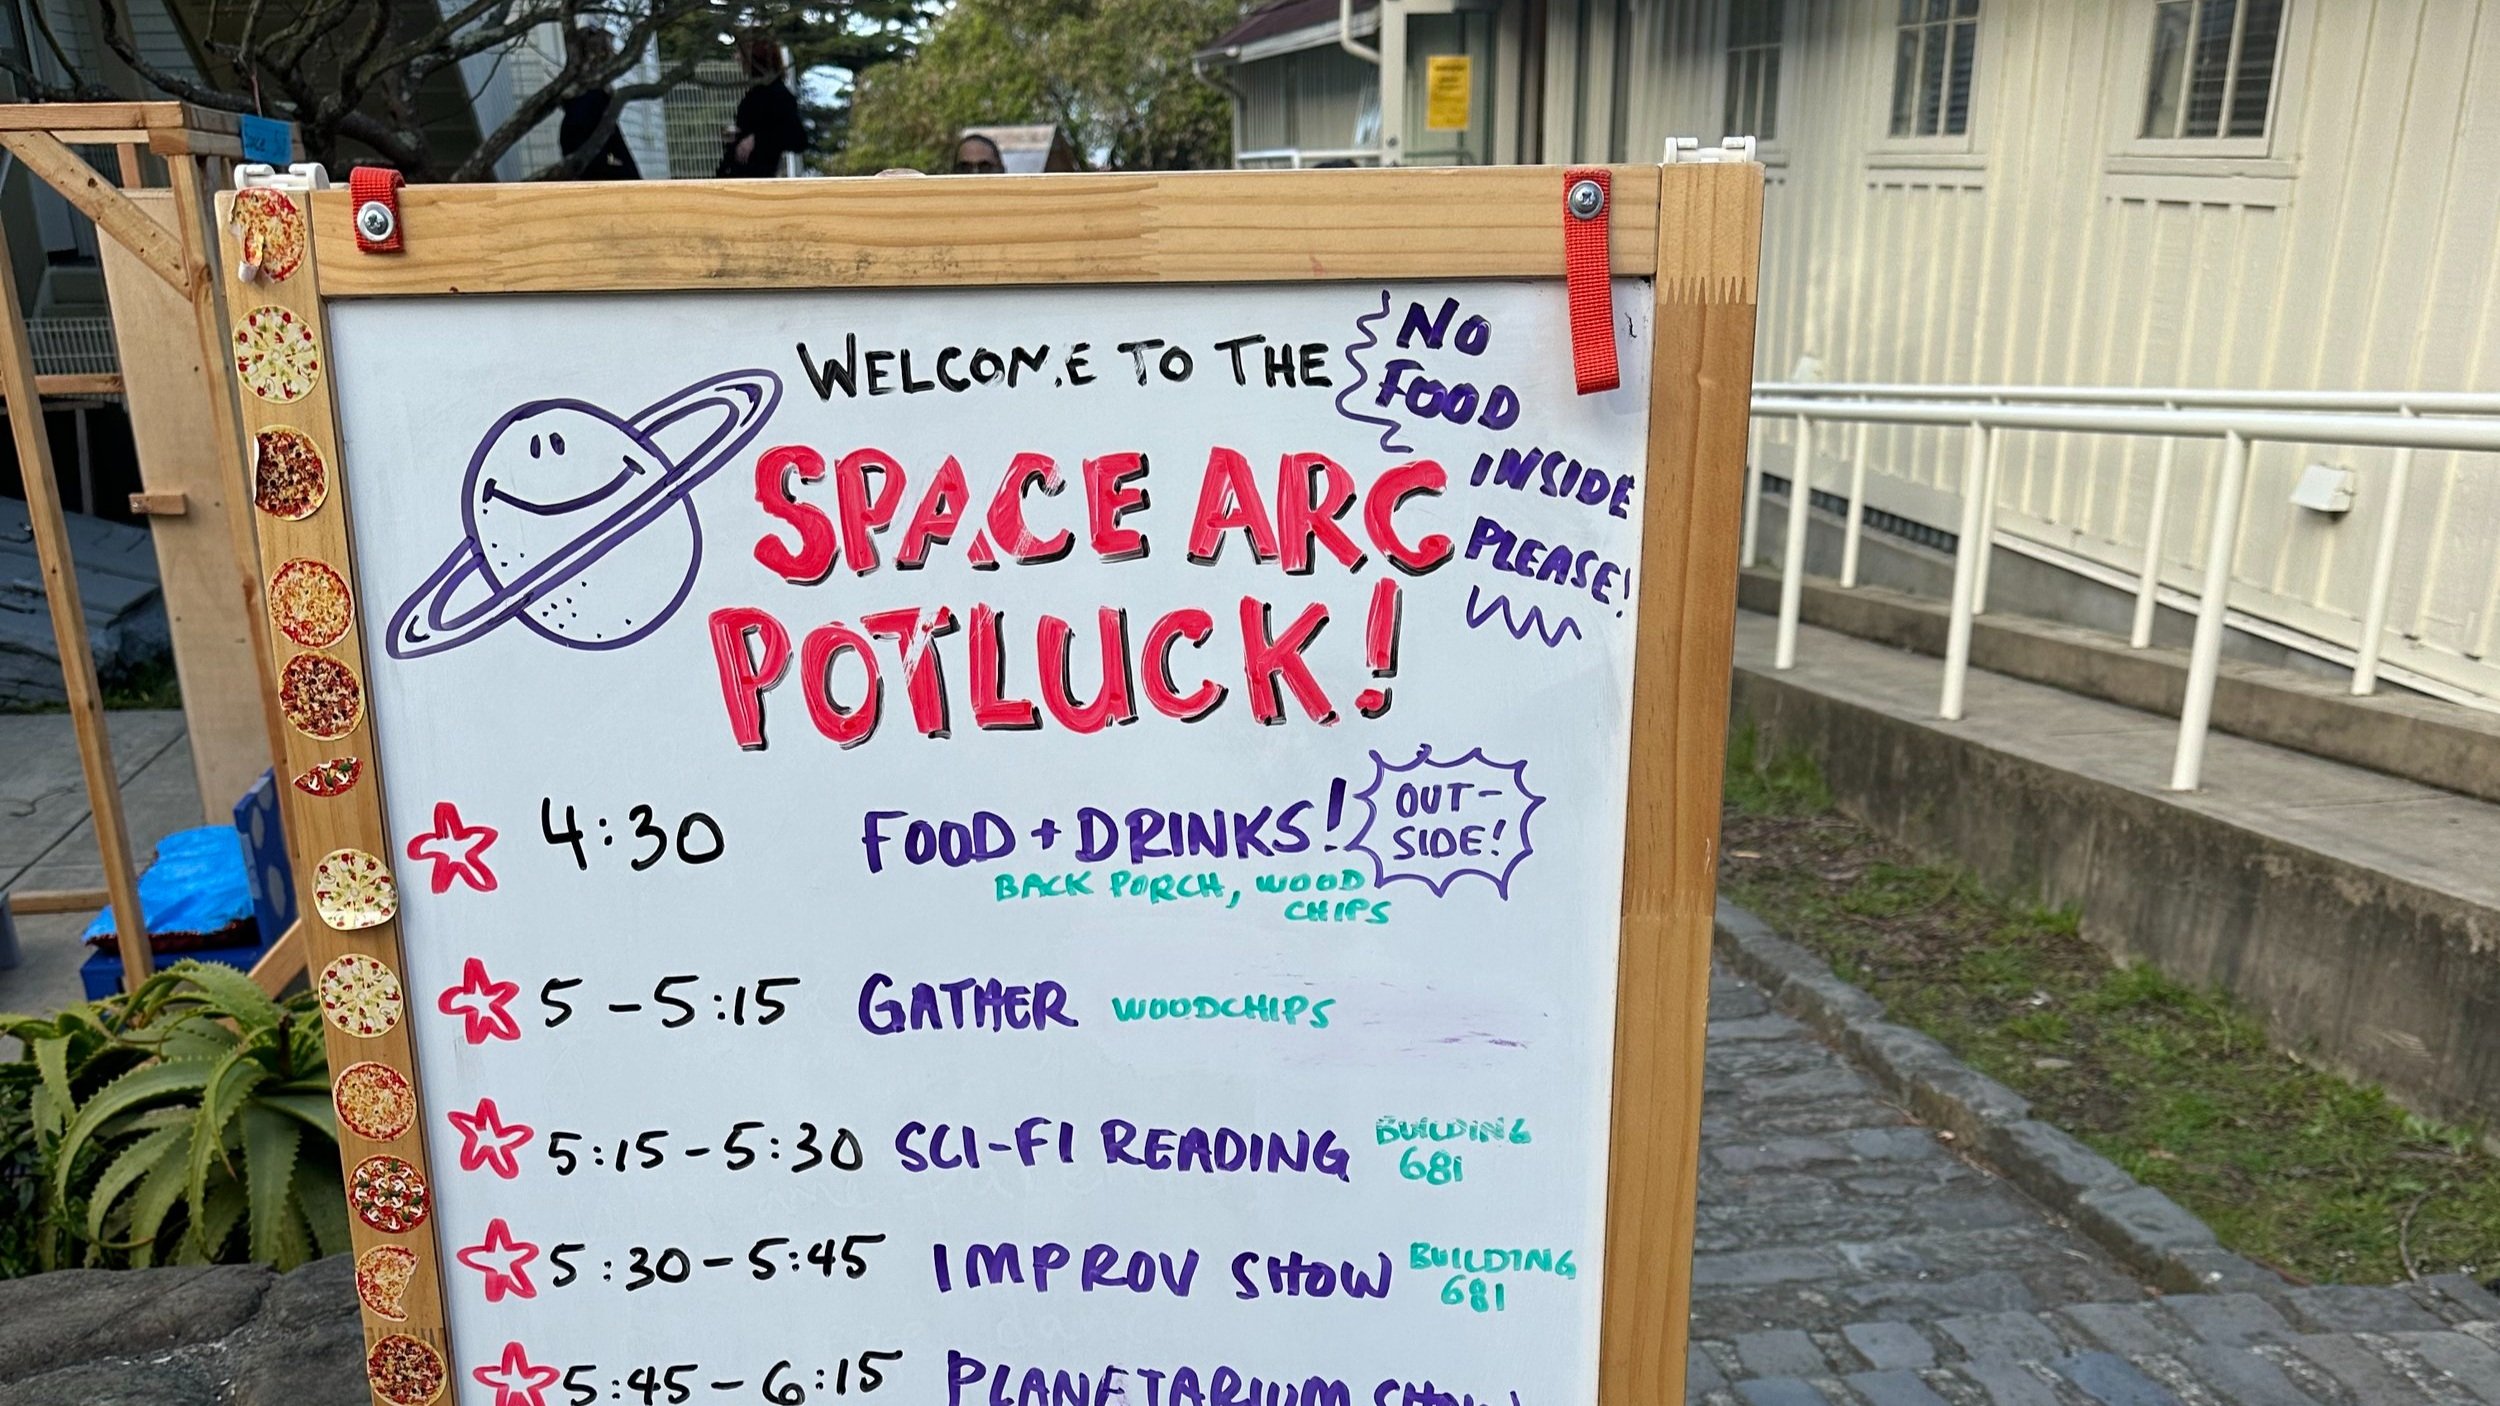 WELCOME TO THE
SPACE ARC
POTLUCK!
NO
FOOD
INSIDE
PLEASE!
4:30 FOOD + DRINKS!
OUT-
SIDE!
BACK PORCH, WOOD
CHIPS
5-5:15 GATHER WOODCHIPS
5:15-5:30 SCI-FI READING BUILDING
681
5:30-5:45 IMPROV SHOW BUILDING
681
5:45-6:15 PLANETARIUM SHOW